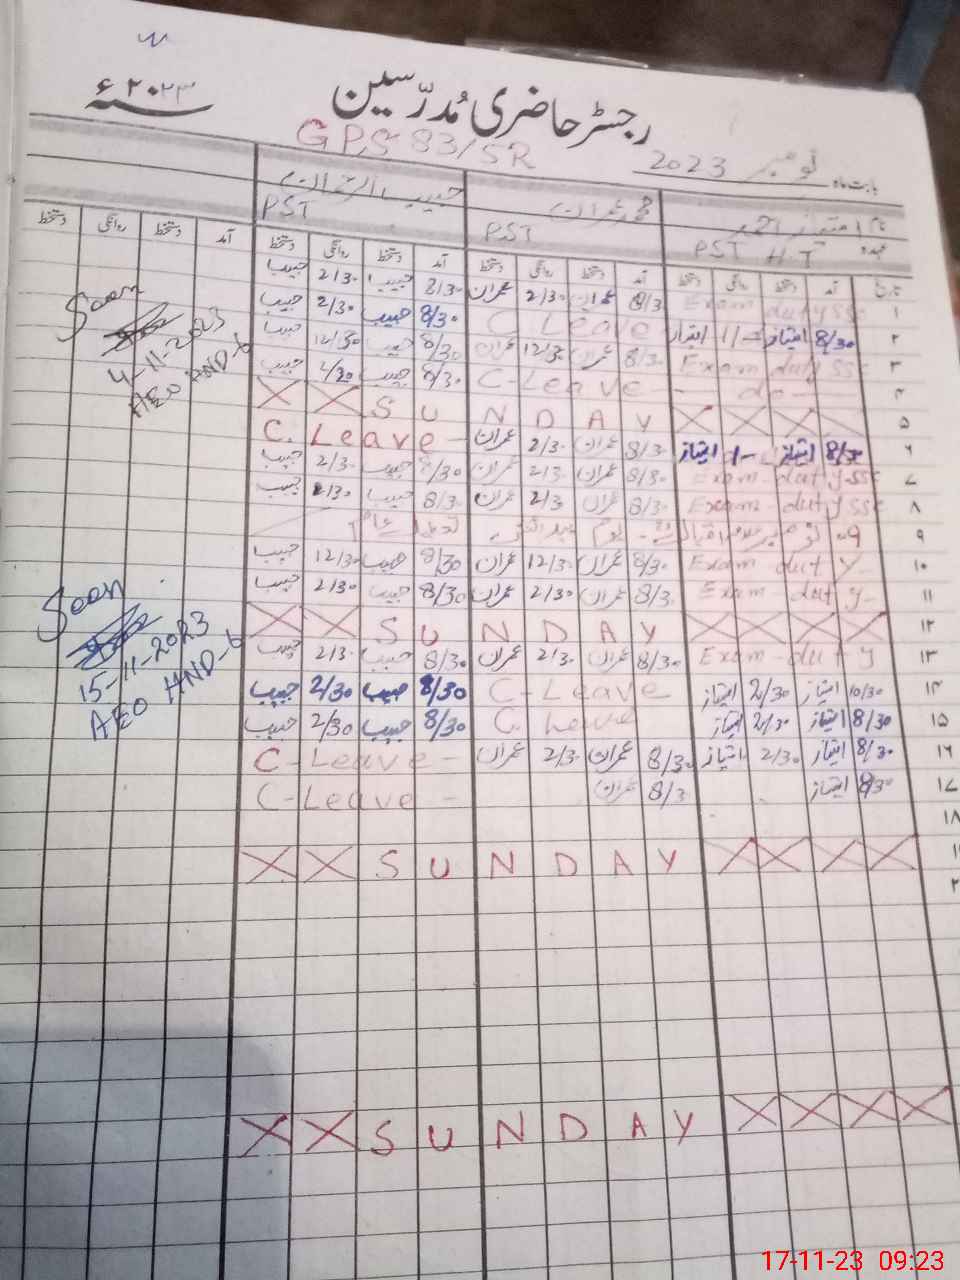 ۲۰۲۳ء
رجسٹر حاضری مُدرّسین
GPS 83/5R
بابت ماہ نومبر 2023
نام امتیاز احمد محمد عمران حبیب الرحمان
عہدہ PST H.T PST PST
تاریخ آمد دستخط روانگی دستخط آمد دستخط روانگی دستخط آمد دستخط روانگی دستخط آمد دستخط روانگی دستخط
۱ Exam duty ssc 8/3 عمران 2/30 عمران 8/3 حبیب 2/3 حبیب
۲ 8/30 امتیاز امتیاز C Leave 8/30 حبیب 2/30 حبیب
۳ Exam duty SS 8/3 عمران 12/3 عمران 8/30 حبیب 12/30 حبیب
۴ do C-Leave 8/30 حبیب حبیب
۵ SUNDAY
۶ 8/30 امتیاز امتیاز 8/3 عمران 2/3 عمران C. Leave
۷ Exam duty-ssc 8/3 عمران 2/3 عمران 8/30 حبیب 2/3 حبیب
۸ Exam-duty ssc 8/3 عمران 2/3 عمران 8/3 حبیب 2/30 حبیب
۹ نومبر اقبال یوم عام
۱۰ Exam duty 8/3 عمران 12/3 عمران 8/30 حبیب 12/30 حبیب
۱۱ Exam-duty 8/3 عمران 2/30 عمران 8/30 حبیب 2/30 حبیب
۱۲ SUNDAY
۱۳ Exam-duty 8/30 عمران 2/3 عمران 8/30 حبیب 2/3 حبیب
۱۴ 10/30 امتیاز 2/30 امتیاز C-Leave 8/30 حبیب 2/30 حبیب
۱۵ 8/30 امتیاز 2/3 امتیاز C. Leave 8/30 حبیب 2/30 حبیب
۱۶ 8/3 امتیاز 2/3 امتیاز 8/3 عمران 2/3 عمران C-Leave
۱۷ 8/30 امتیاز 8/3 عمران C-Leave
۱۸
SUNDAY
SUNDAY
Seen
4-11-2023
AEO HND-6
Seen
15-11-2023
AEO HND-6
17-11-23 09:23